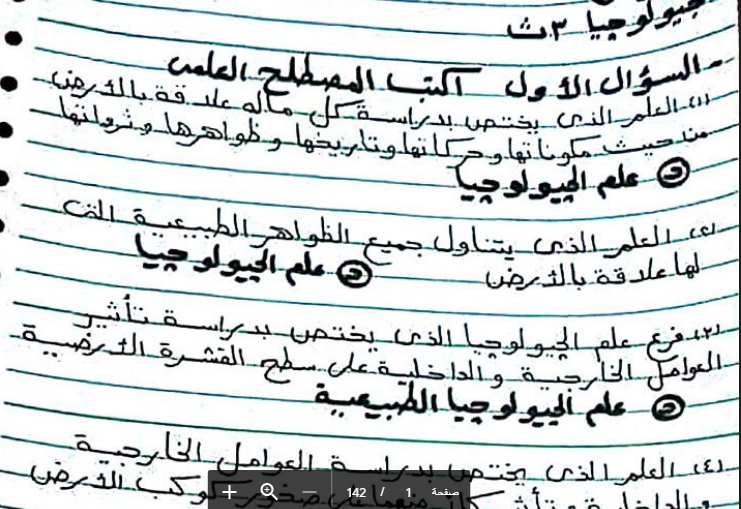 جيولوجيا ٣ث
- السؤال الأول اكتب المصطلح العلمى
(١) العلم الذى يختص بدراسة كل ماله علاقة بالأرض
من حيث مكوناتها وحركاتها وتاريخها وظواهرها وثرواتها
ج علم الجيولوجيا
(٢) العلم الذى يتناول جميع الظواهر الطبيعية التى
لها علاقة بالأرض ج علم الجيولوجيا
(٣) فرع علم الجيولوجيا الذى يختص بدراسة تأثير
العوامل الخارجية والداخلية على سطح القشرة الأرضية
ج علم الجيولوجيا الطبيعية
(٤) العلم الذى يختص بدراسة العوامل الخارجية
والداخلية وتأثير كل منهما على صخور كوكب الأرض
صفحة 1 / 142